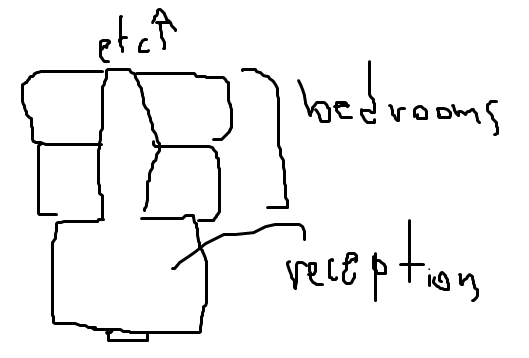 etc↑
bedrooms
reception